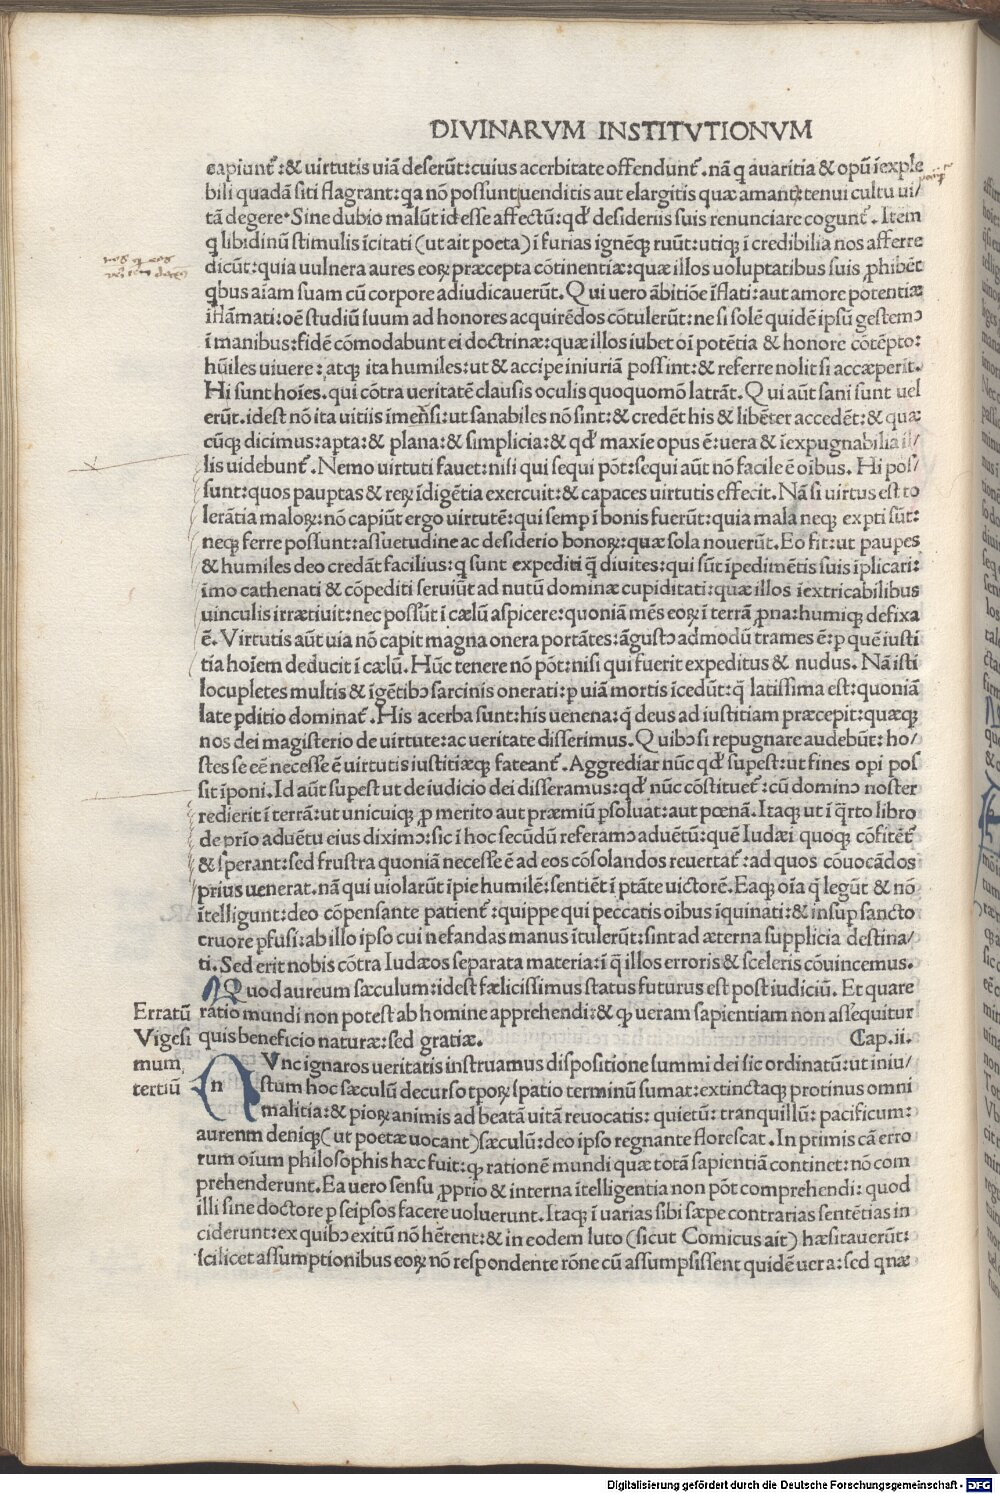 DIVINARVM INSTITVTIONVM
capiunt̃:& uirtutis uiã deserũt:cuius acerbitate offendunt̃.nã q auaritia & opũ ĩexple
bili quadã siti flagrant:qa nõ possunt uenditis aut elargitis quæ amant: tenui cultu ui/
tã degere.Sine dubio malũt id esse affectũ:qđ desideriis suis renunciare cogunt̃. Item
q libidinũ stimulis ĩcitati (ut ait poeta) ĩ furias ignẽqꝫ ruũt:utiqꝫ ĩ credibilia nos afferre
dicũt:quia uulnera aures eoꝝ præcepta cõtinentiæ:quæ illos uoluptatibus suis ꝓhibẽt
qbus aĩam suam cũ corpore adiudicauerũt.Qui uero ãbitiõe ĩflati:aut amore potentiæ
ĩflãmati:oẽ studiũ suum ad honores acquirẽdos cõtulerũt:ne si solẽ quidẽ ipsũ gestemꝰ
ĩ manibus:fidẽ cõmodabunt ei doctrinæ:quæ illos iubet oĩ potẽtia & honore cõtẽpto:
hũiles uiuere:atqꝫ ita humiles:ut & accipe iniuriã possint:& referre nolit si accæperit.
Hi sunt hoĩes.qui cõtra ueritatẽ clausis oculis quoquomõ latrãt.Qui aũt sani sunt uel
erũt.idest nõ ita uitiis ĩmẽsi:ut sanabiles nõ sint:& credẽt his & libẽter accedẽt:& quæ
cũqꝫ dicimus:apta:& plana:& simplicia:& qđ maxĩe opus ẽ:uera & ĩexpugnabilia il/
lis uidebunt̃.Nemo uirtuti fauet:nisi qui sequi põt:sequi aũt nõ facile ẽ oĩbus. Hi pos/
sunt:quos pauptas & reꝝ ĩdigẽtia exercuit:& capaces uirtutis effecit.Nã si uirtus est to
lerãtia maloꝝ:nõ capiũt ergo uirtutẽ:qui semp ĩ bonis fuerũt:quia mala neqꝫ expti sũt:
neqꝫ ferre possunt:assuetudine ac desiderio bonoꝝ:quæ sola nouerũt.Eo fit:ut paupes
& humiles deo credãt facilius:q sunt expediti q̃ diuites:qui sũt ĩpedimẽtis suis ĩplicati:
ĩmo cathenati & cõpediti seruiũt ad nutũ dominæ cupiditati:quæ illos ĩextricabilibus
uinculis irrætiuit:nec possũt ĩ cælũ aspicere:quoniã mẽs eoꝝ ĩ terrã ꝓna:humiqꝫ defixa
ẽ.Virtutis aũt uia nõ capit magna onera portãtes:ãgustꝰ admodũ trames ẽ:ꝑ quẽ iusti
tia hoĩem deducit ĩ cælũ. Hũc tenere nõ põt:nisi qui fuerit expeditus & nudus. Nã isti
locupletes multis & ĩgẽtibꝰ sarcinis onerati:ꝑ uiã mortis ĩcedũt:q̃ latissima est:quoniã
late ꝑditio dominat̃.His acerba sunt:his uenena:q̃ deus ad iustitiam præcepit:quæqꝫ
nos dei magisterio de uirtute:ac ueritate disserimus.Quibꝰ si repugnare audebũt:ho/
stes se eẽ necesse ẽ uirtutis iustitiæqꝫ fateant̃.Aggrediar nũc qđ supest:ut fines opi pos
sit ĩponi.Id aũt supest ut de iudicio dei disseramus:qđ nũc cõstituet̃:cũ dominꝰ noster
redierit ĩ terrã:ut unicuiqꝫ ꝓ merito aut præmiũ psoluat:aut pœnã.Itaqꝫ ut ĩ q̃rto libro
de prĩo aduẽtu eius diximꝰ:sic ĩ hoc secũdũ referamꝰ aduẽtũ:quẽ Iudæi quoqꝫ cõfitẽt̃
& sperant:sed frustra quoniã necesse ẽ ad eos cõsolandos reuertat̃:ad quos cõuocãdos
prius uenerat.nã qui uiolarũt ĩpie humilẽ:sentiẽt ĩ ptãte uictorẽ.Eaqꝫ oĩa q̃ legũt & nõ
ĩtelligunt:deo cõpensante patient̃:quippe qui peccatis oĩbus ĩquinati:& insup sancto
cruore pfusi:ab illo ipso cui nefandas manus ĩtulerũt:sint ad æterna supplicia destina/
ti.Sed erit nobis cõtra Iudæos separata materia:ĩ q̃ illos erroris & sceleris cõuincemus.
Quod aureum sæculum:idest fælicissimus status futurus est post iudiciũ. Et quare
ratio mundi non potest ab homine apprehendi:& qꝫ ueram sapientiam non assequitur
quis beneficio naturæ:sed gratiæ. Cap.ii.
Erratũ
Vigesi
mum
tertiũ
nVnc ignaros ueritatis instruamus dispositione summi dei sic ordinatũ:ut iniu/
stum hoc sæculũ decurso tpoꝝ spatio terminũ sumat:extinctaqꝫ protinus omni
malitia:& pioꝝ animis ad beatã uitã reuocatis: quietũ: tranquillũ: pacificum:
aurenm deniqꝫ(ut poetæ uocant)sæculũ:deo ipso regnante florescat.In primis cã erro
rum oĩum philosophis hæc fuit:qꝫ rationẽ mundi quæ totã sapientiã continet:nõ com
prehenderunt.Ea uero sensu ꝓprio & interna ĩtelligentia non põt comprehendi: quod
illi sine doctore p seipsos facere uoluerunt.Itaqꝫ ĩ uarias sibi sæpe contrarias sentẽtias in
ciderunt:ex quibꝰ exitũ nõ hẽrent:& in eodem luto (sicut Comicus ait) hæsitauerũt:
scilicet assumptionibus eoꝝ nõ respondente rõne cũ assumpsissent quidẽ uera:sed qnæ
Digitalisierung gefördert durch die Deutsche Forschungsgemeinschaft - DFG